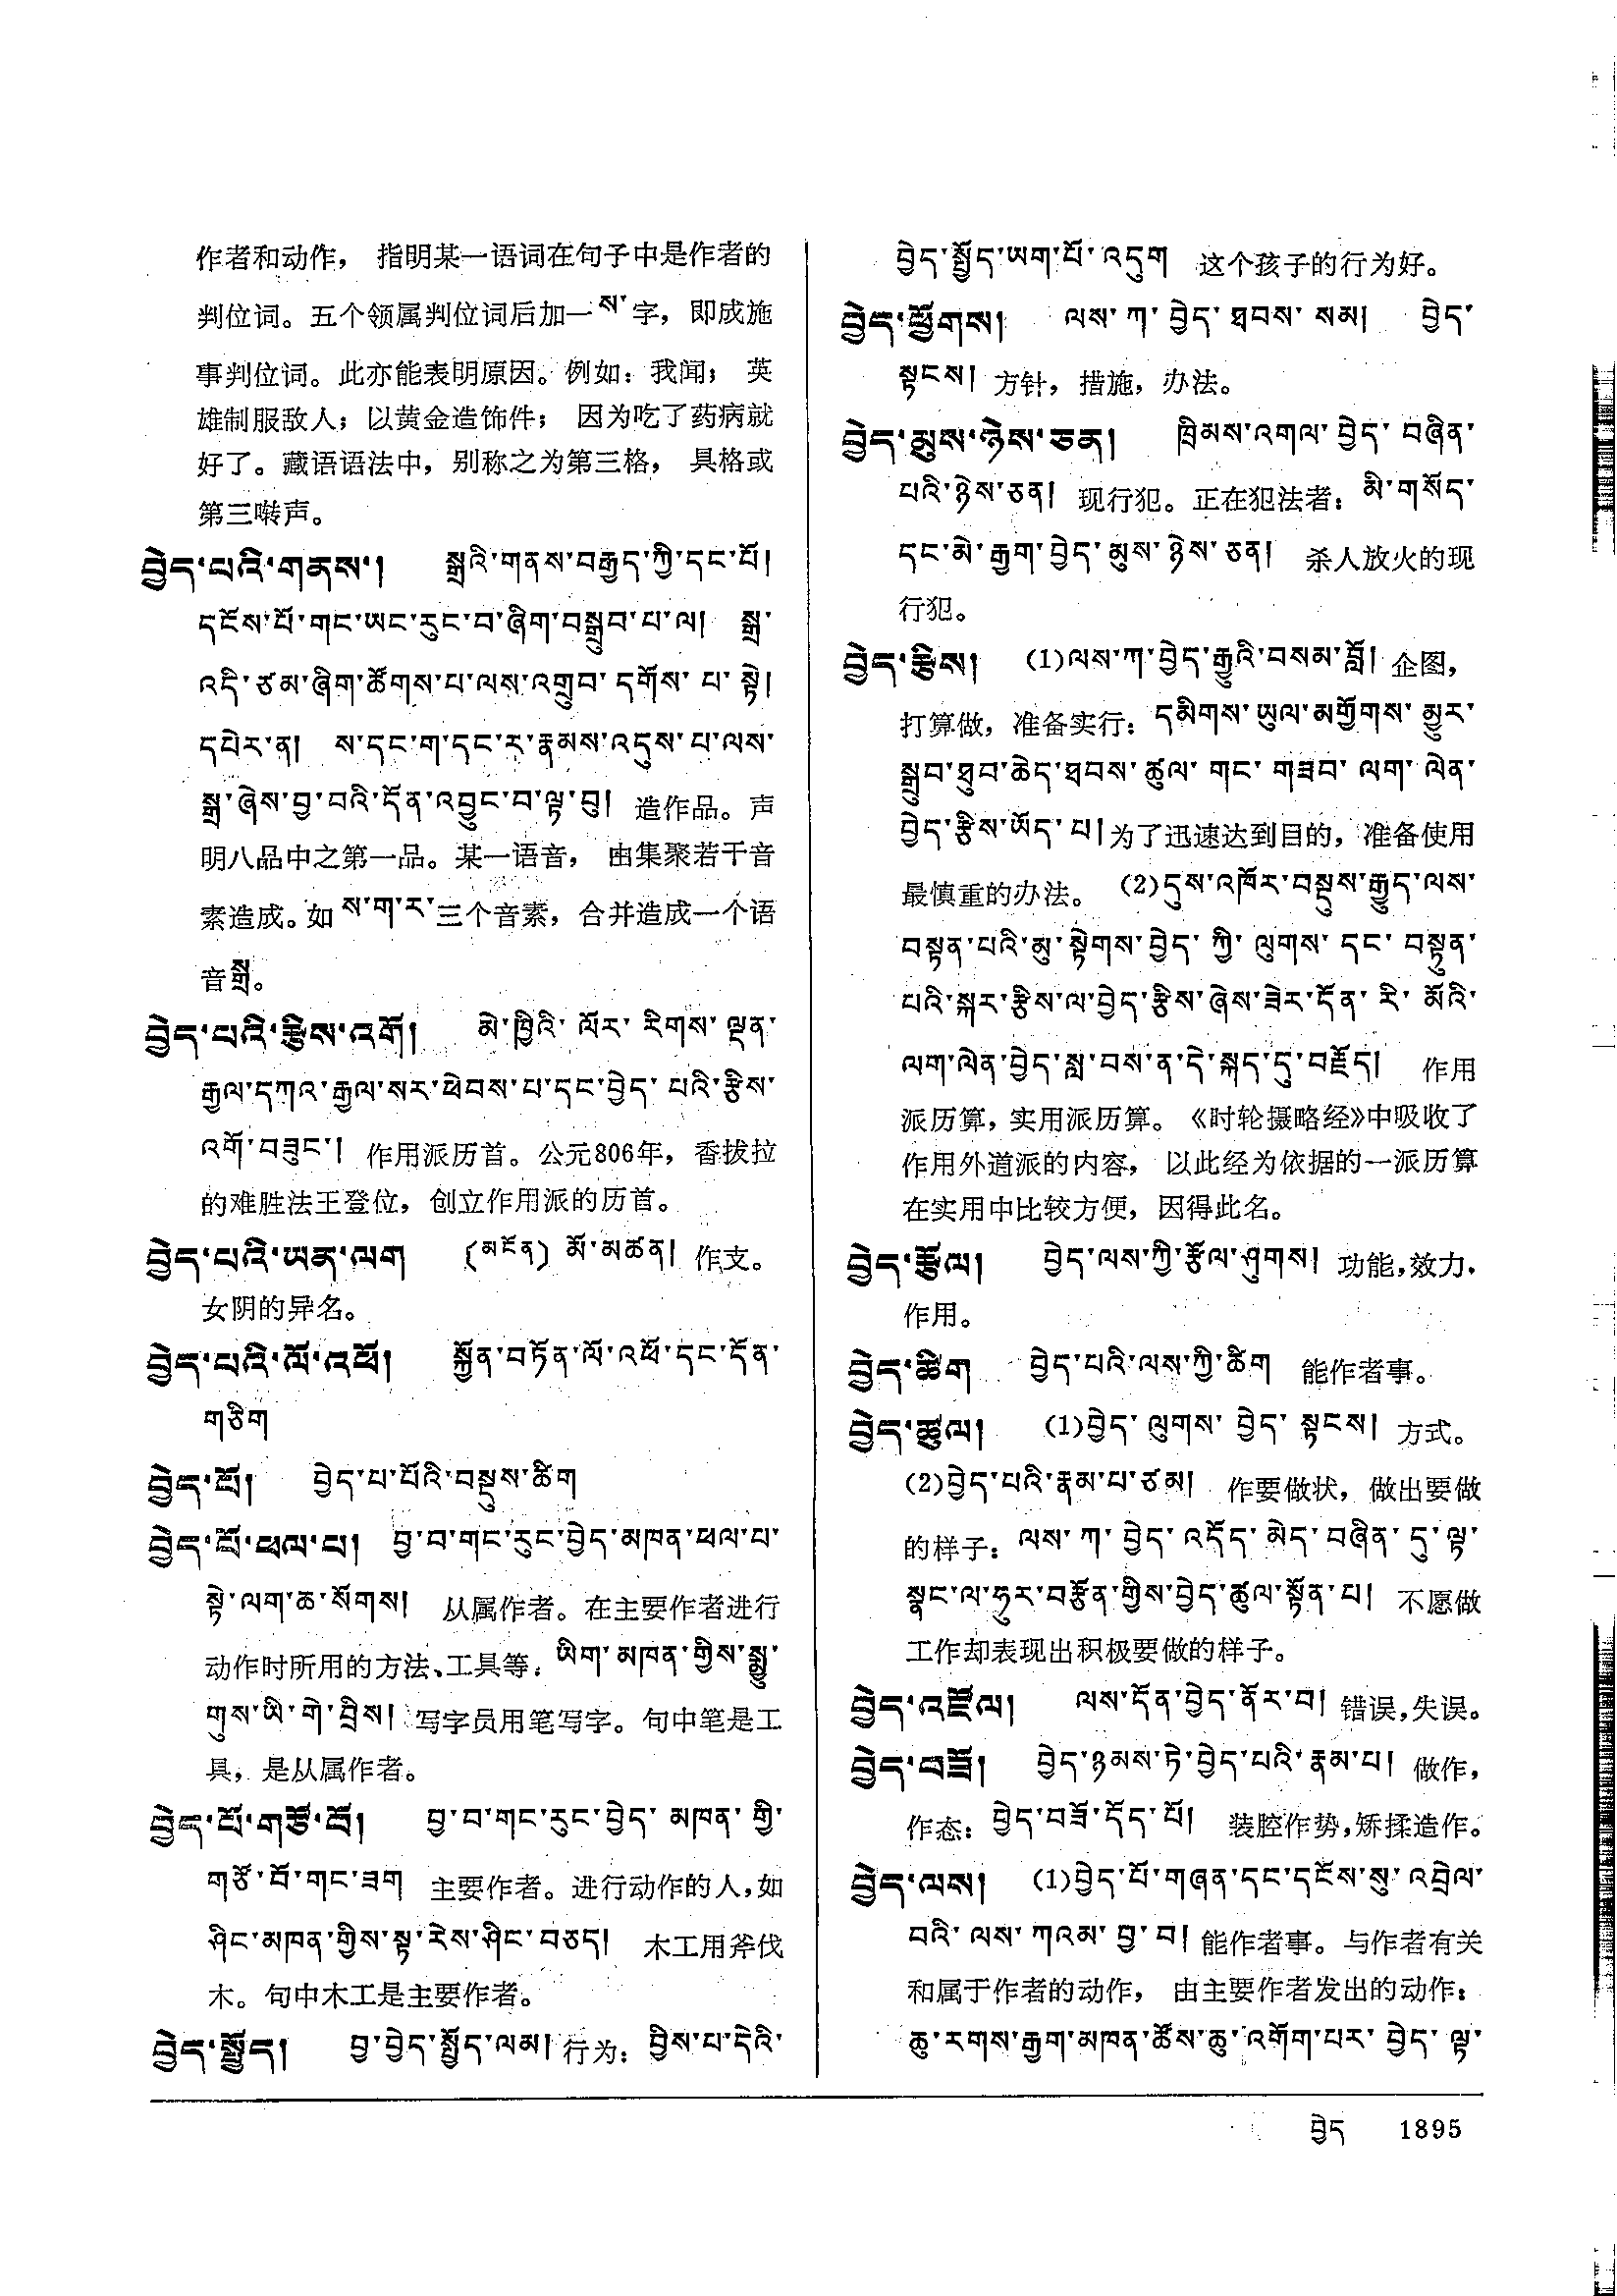 作者和动作， 指明某一语词在句子中是作者的
判位词。五个领属判位词后加一ས་字，即成施
事判位词。此亦能表明原因。例如：我闻； 英
雄制服敌人；以黄金造饰件； 因为吃了药病就
好了。藏语语法中，别称之为第三格， 具格或
第三啭声。
བྱེད་པའི་གནས་། སྒྲའི་གནས་བརྒྱད་ཀྱི་དང་པོ།
དངོས་པོ་གང་ཡང་རུང་བ་ཞིག་བསྒྲུབ་པ་ལ། སྒྲ་
འདི་ཙམ་ཞིག་ཚོགས་པ་ལས་འགྲུབ་དགོས་པ་སྟེ།
དཔེར་ན། ས་དང་ག་དང་ར་རྣམས་འདུས་པ་ལས་
སྒྲ་ཞེས་བྱ་བའི་དོན་འབྱུང་བ་ལྟ་བུ། 造作品。声
明八品中之第一品。某一语音， 由集聚若干音
素造成。如ས་ག་ར་三个音素，合并造成一个语
音སྒྲ。
བྱེད་པའི་རྩིས་འགོ། མེ་ཁྱིའི་ལོར་རིགས་ལྡན་
རྒྱལ་དཀའ་རྒྱལ་སར་ཕེབས་པ་དང་བྱེད་པའི་རྩིས་
འགོ་བཟུང་། 作用派历首。公元806年，香拔拉
的难胜法王登位，创立作用派的历首。
བྱེད་པའི་ཡན་ལག (མངོན) མོ་མཚན། 作支。
女阴的异名。
བྱེད་པའི་ལོ་འཕོ། སྐྱོན་བཏོན་ལོ་འཕོ་དང་དོན་
གཅིག
བྱེད་པོ། བྱེད་པ་པོའི་བསྡུས་ཚིག
བྱེད་པོ་ཕལ་པ། བྱ་བ་གང་རུང་བྱེད་མཁན་ཕལ་པ་
སྟེ་ལག་ཆ་སོགས། 从属作者。在主要作者进行
动作时所用的方法、工具等：ཡིག་མཁན་གྱིས་སྨྱུ་
གུས་ཡི་གེ་བྲིས། 写字员用笔写字。句中笔是工
具，是从属作者。
བྱེད་པོ་གཙོ་བོ། བྱ་བ་གང་རུང་བྱེད་མཁན་གྱི་
གཙོ་བོ་གང་ཟག 主要作者。进行动作的人，如
ཤིང་མཁན་གྱིས་སྟ་རེས་ཤིང་བཅད། 木工用斧伐
木。句中木工是主要作者。
བྱེད་སྤྱོད། བྱ་བྱེད་སྤྱོད་ལམ། 行为：བྱིས་པ་དེའི་
བྱེད་སྤྱོད་ཡག་པོ་འདུག 这个孩子的行为好。
བྱེད་ཕྱོགས། ལས་ཀ་བྱེད་ཐབས་སམ། བྱེད་
སྟངས། 方针，措施，办法。
བྱེད་མུས་ཉེས་ཅན། ཁྲིམས་འགལ་བྱེད་བཞིན་
པའི་ཉེས་ཅན། 现行犯。正在犯法者：མི་གསོད་
དང་མེ་རྒྱག་བྱེད་མུས་ཉེས་ཅན། 杀人放火的现
行犯。
བྱེད་རྩིས། (1)ལས་ཀ་བྱེད་རྒྱུའི་བསམ་བློ། 企图，
打算做，准备实行：དམིགས་ཡུལ་མགྱོགས་མྱུར་
སྒྲུབ་ཐུབ་ཆེད་ཐབས་ཚུལ་གང་གཟབ་ལག་ལེན་
བྱེད་རྩིས་ཡོད་པ། 为了迅速达到目的，准备使用
最慎重的办法。 (2)དུས་འཁོར་བསྡུས་རྒྱུད་ལས་
བསྟན་པའི་མུ་སྟེགས་བྱེད་ཀྱི་ལུགས་དང་བསྟུན་
པའི་སྐར་རྩིས་ལ་བྱེད་རྩིས་ཞེས་ཟེར་དོན་རི་མོའི་
ལག་ལེན་བྱེད་སླ་བས་ན་དེ་སྐད་དུ་བརྗོད། 作用
派历算，实用派历算。《时轮摄略经》中吸收了
作用外道派的内容， 以此经为依据的一派历算
在实用中比较方便，因得此名。
བྱེད་རྩོལ། བྱེད་ལས་ཀྱི་རྩོལ་ཤུགས། 功能，效力，
作用。
བྱེད་ཚིག བྱེད་པའི་ལས་ཀྱི་ཚིག 能作者事。
བྱེད་ཚུལ། (1)བྱེད་ལུགས་བྱེད་སྟངས། 方式。
(2)བྱེད་པའི་རྣམ་པ་ཙམ། 作要做状，做出要做
的样子：ལས་ཀ་བྱེད་འདོད་མེད་བཞིན་དུ་ལྟ་
སྣང་ལ་ཧུར་བརྩོན་གྱིས་བྱེད་ཚུལ་སྟོན་པ། 不愿做
工作却表现出积极要做的样子。
བྱེད་འཛོལ། ལས་དོན་བྱེད་ནོར་བ། 错误，失误。
བྱེད་བཟོ། བྱེད་ཉམས་ཏེ་བྱེད་པའི་རྣམ་པ། 做作，
作态：བྱེད་བཟོ་དོད་པོ། 装腔作势，矫揉造作。
བྱེད་ལས། (1)བྱེད་པོ་གཞན་དང་དངོས་སུ་འབྲེལ་
བའི་ལས་ཀའམ་བྱ་བ། 能作者事。与作者有关
和属于作者的动作， 由主要作者发出的动作：
ཆུ་རགས་རྒྱག་མཁན་ཚོས་ཆུ་འགོག་པར་བྱེད་ལྟ་
བྱེད 1895